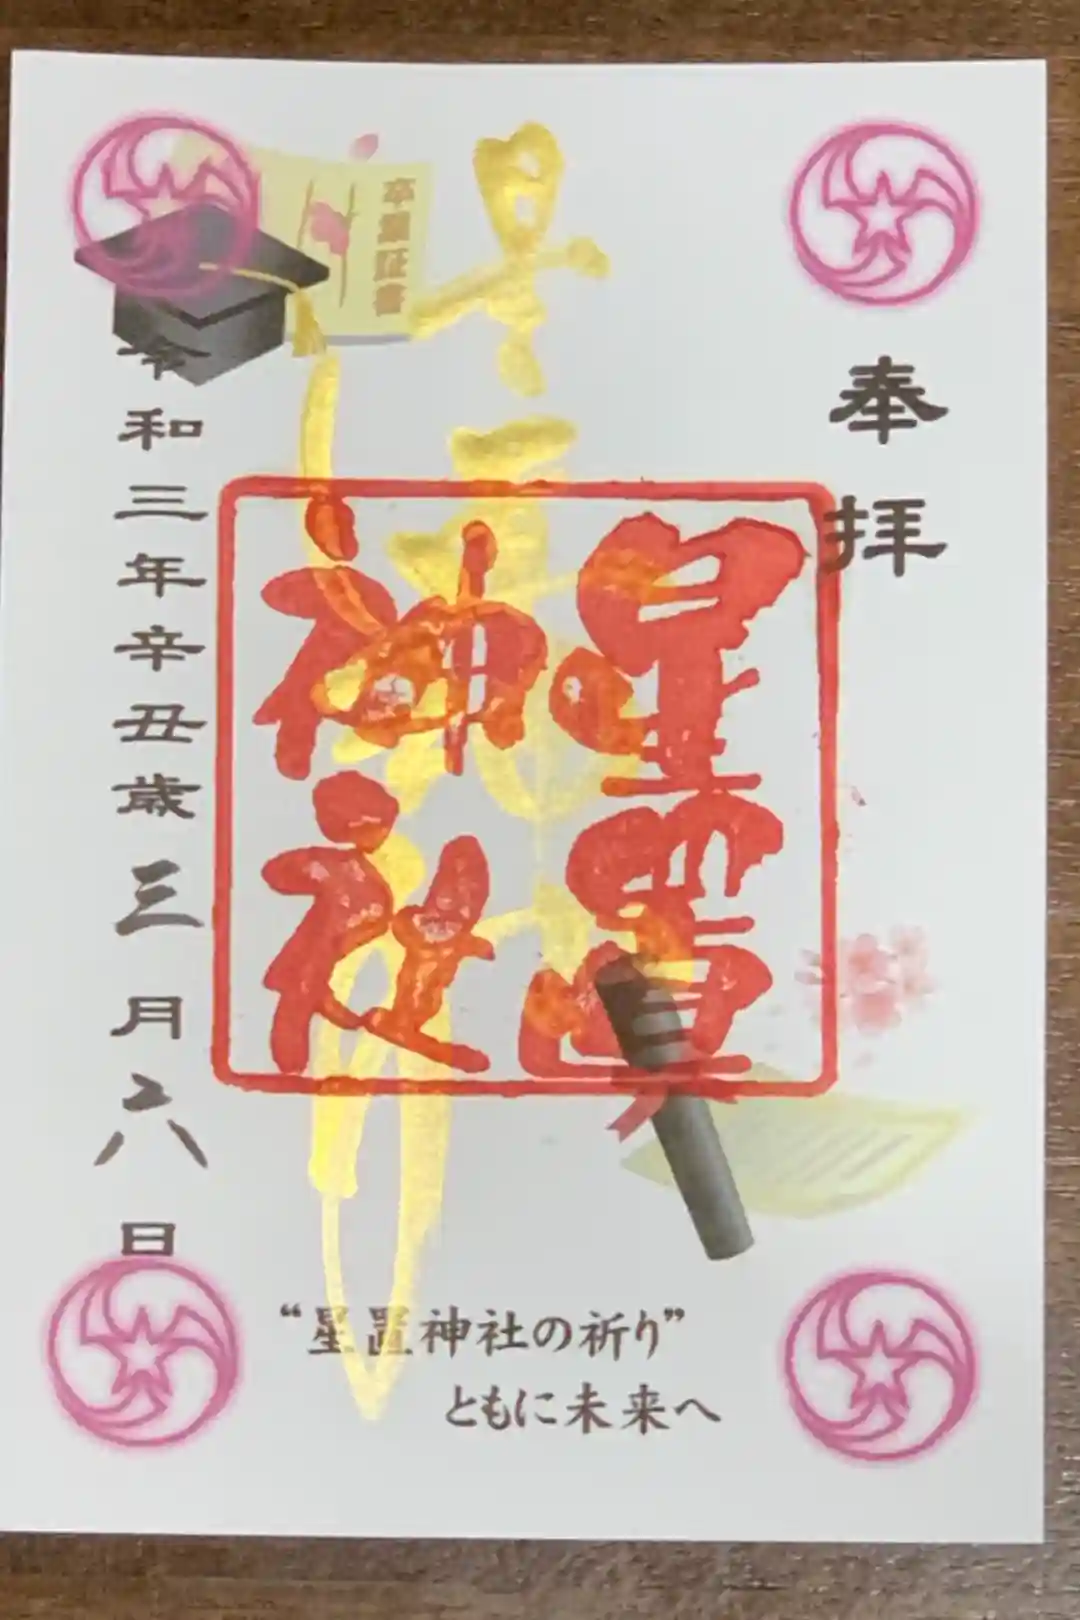 奉拝
星置神社
星置神社
卒業証書
令和三年辛丑歳三月六日
“星置神社の祈り”
ともに未来へ